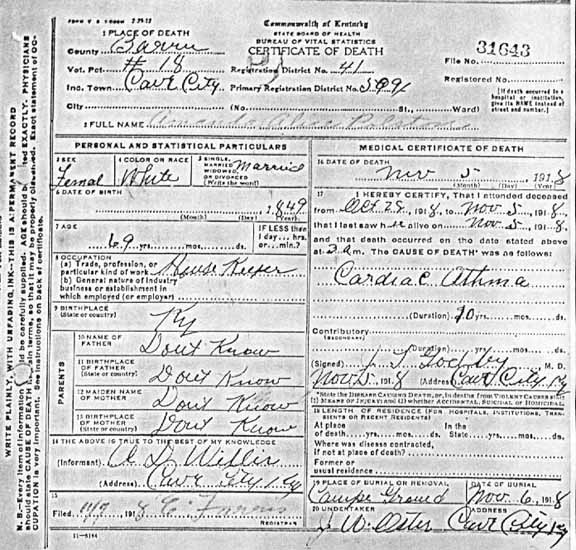 FORM V S
Commonwealth of Kentucky
STATE BOARD OF HEALTH
BUREAU OF VITAL STATISTICS
CERTIFICATE OF DEATH
31643
File No.
Registered No.
[If death occurred in a
hospital or institution,
give its NAME instead of
street and number.]
1 PLACE OF DEATH
County Barren
Vot. Pct. #18 Registration District No. 41
Inc. Town Cave City Primary Registration District No.
City (No. St., Ward)
2 FULL NAME Alice
PERSONAL AND STATISTICAL PARTICULARS
3 SEX Femal
4 COLOR OR RACE White
5 SINGLE, MARRIED, WIDOWED, OR DIVORCED (Write the word) Married
6 DATE OF BIRTH
1849
(Month) (Day) (Year)
7 AGE
69 yrs. mos. ds.
IF LESS than
1 day... hrs.
or... min.?
8 OCCUPATION
(a) Trade, profession, or
particular kind of work House Keeper
(b) General nature of industry
business or establishment in
which employed (or employer)
9 BIRTHPLACE
(State or country) Ky
PARENTS
10 NAME OF
FATHER Dont Know
11 BIRTHPLACE
OF FATHER
(State or country) Dont Know
12 MAIDEN NAME
OF MOTHER Dont Know
13 BIRTHPLACE
OF MOTHER
(State or country) Dont Know
14 THE ABOVE IS TRUE TO THE BEST OF MY KNOWLEDGE
(Informant) Willis
(Address) Cave City Ky
15
Filed 191 8
REGISTRAR
11-3184
MEDICAL CERTIFICATE OF DEATH
16 DATE OF DEATH
Nov 5 191 8
(Month) (Day) (Year)
17 I HEREBY CERTIFY, That I attended deceased
from Oct 28, 191 8, to Nov 5, 191 8,
that I last saw h alive on Nov 5, 191 8,
and that death occurred on the date stated above
at 3 a m. The CAUSE OF DEATH* was as follows:
Cardiac Athma
(Duration) 10 yrs. mos. ds.
Contributory
(SECONDARY)
(Duration) yrs. mos. ds.
(Signed) M. D.
Nov 5 191 8 (Address) Cave City Ky
*State the Disease Causing Death, or, in deaths from Violent Causes state
(1) Means of Injury; and (2) whether Accidental, Suicidal or Homicidal.
18 LENGTH OF RESIDENCE (FOR HOSPITALS, INSTITUTIONS, TRANSIENTS OR RECENT RESIDENTS)
At place In the
of death yrs. mos. ds. State yrs. mos. ds.
Where was disease contracted,
if not at place of death?
Former or
usual residence
19 PLACE OF BURIAL OR REMOVAL
Camp Ground
DATE OF BURIAL
Nov 6, 191 8
20 UNDERTAKER
J W Oster
ADDRESS
Cave City Ky